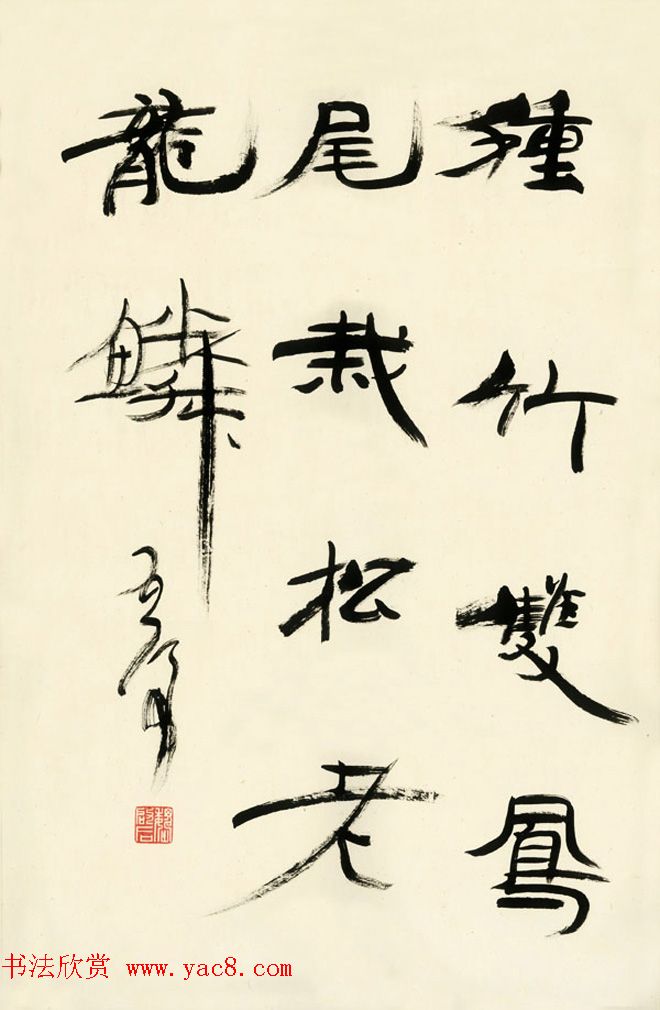 種竹雙鳳
尾栽松老
龍鱗
书法欣赏 www.yac8.com